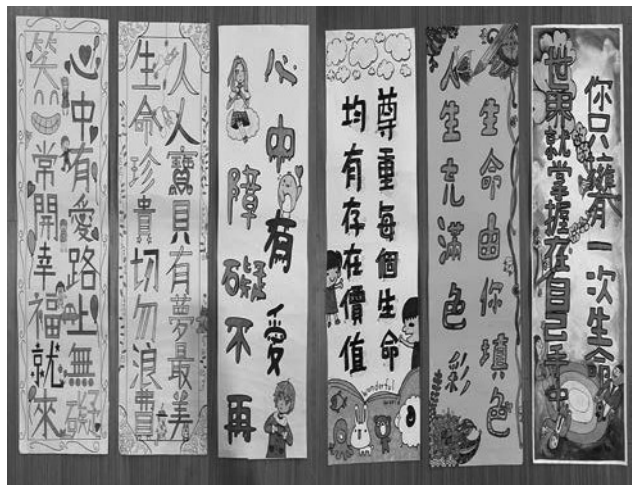 心中有愛路上無礙
笑常開幸福就來
人人寶貝有夢最美
生命珍貴切勿浪費
心中有愛
障礙不再
尊重每個生命
均有存在價值
wonderful
生命由你填色
人生充滿色彩
您只擁有一次生命
世界就掌握在自己手中